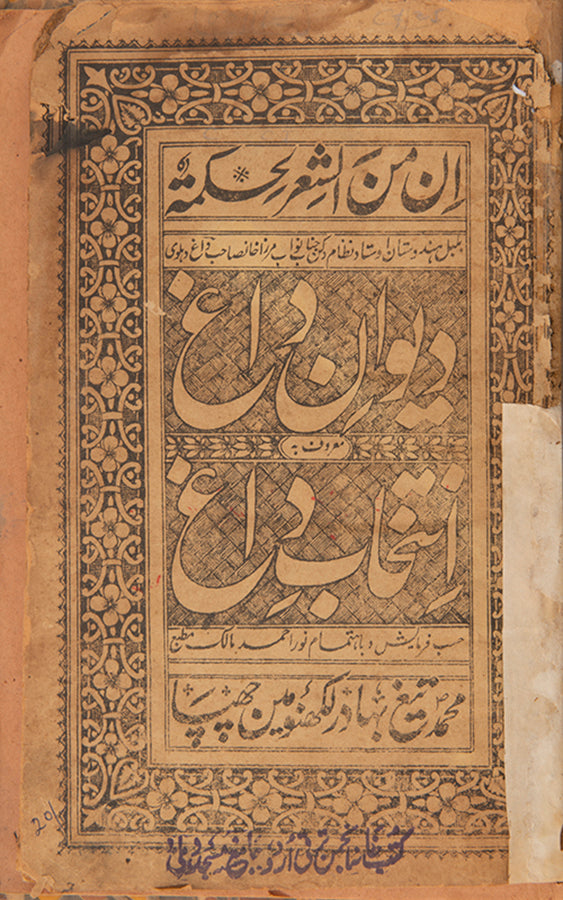 اِن مِنَ الشِعرِ لحکمة
بلبل ہندوستان استاد نظام دکن جناب نواب مرزا خانصاحب داغ دہلوی
دیوانِ داغ
معروف بہ
اِنتخابِ داغ
حسب فرمایش و باہتمام نور احمد مالک مطبع
محمد تیغ بہادر لکھنؤ مین چھپا
کتب خانہ انجمن ترقی اردو جامع مسجد دہلی
201